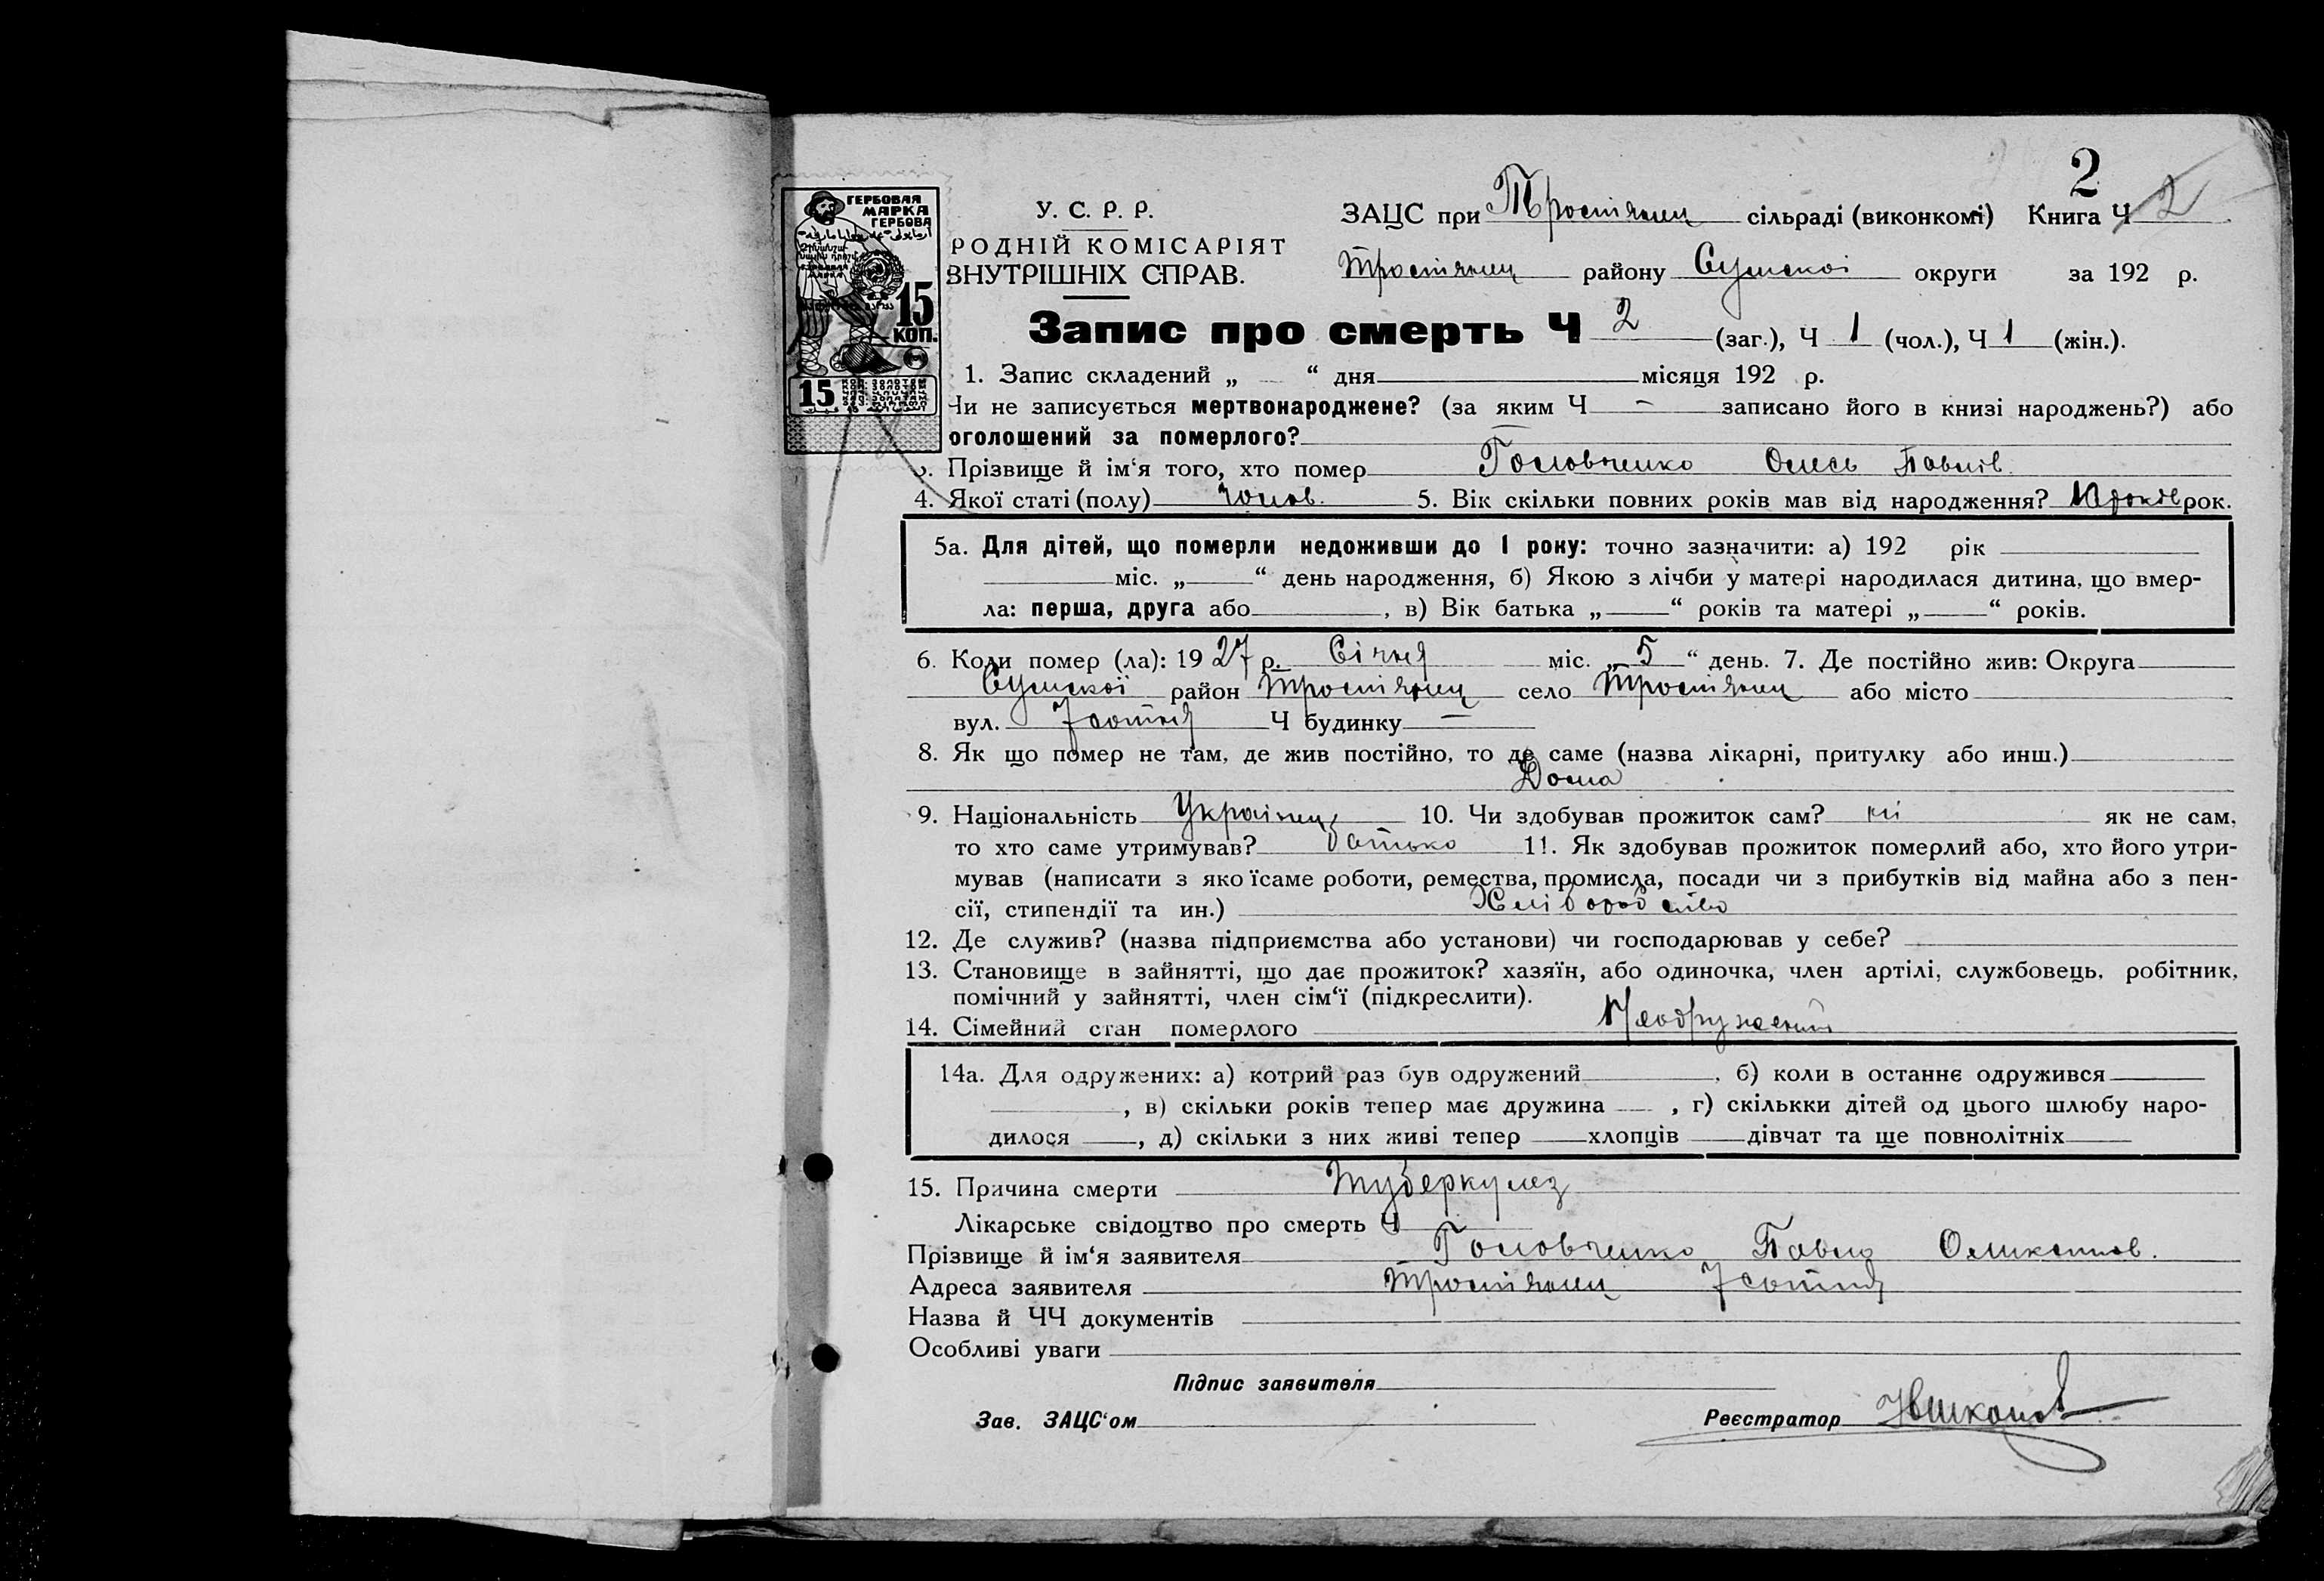 2
ГЕРБОВАЯ
МАРКА
ГЕРБОВА
15
КОП.
15
У. С. Р. Р.
РОДНІЙ КОМІСАРІЯТ
ВНУТРІШНІХ СПРАВ.
ЗАЦС при Тростянец сільраді (виконкомі) Книга Ч 2
Тростянец району Сумскої округи за 192 р.
Запис про смерть Ч 2 (заг.), Ч 1 (чол.), Ч 1 (жін.).
1. Запис складений „ — “ дня місяця 192 р.
Чи не записується мертвонароджене? (за яким Ч — записано його в книзі народжень?) або
оголошений за померлого?
3. Прізвище й ім‘я того, хто помер Головченко Олесь Павлів
4. Якої статі (полу) чолов. 5. Вік скільки повних років мав від народження? років рок.
5а. Для дітей, що померли недоживши до 1 року: точно зазначити: а) 192 рік
міс. „ “ день народження, б) Якою з лічби у матері народилася дитина, що вмер-
ла: перша, друга або , в) Вік батька „ “ років та матері „ “ років.
6. Коли помер (ла): 1927 р. Січня міс. „ 5 “ день. 7. Де постійно жив: Округа
Сумскої район Тростянец село Тростянец або місто
вул. 7 сотня Ч будинку —
8. Як що помер не там, де жив постійно, то де саме (назва лікарні, притулку або инш.)
Дома
9. Національність Українец 10. Чи здобував прожиток сам? ні як не сам,
то хто саме утримував? батько 11. Як здобував прожиток померлий або, хто його утри-
мував (написати з яко їсаме роботи, ремества, промисла, посади чи з прибутків від майна або з пен-
сії, стипендії та ин.) Хліборобство
12. Де служив? (назва підприємства або установи) чи господарював у себе?
13. Становище в зайнятті, що дає прожиток? хазяїн, або одиночка, член артілі, службовець, робітник,
помічний у зайнятті, член сім‘ї (підкреслити).
14. Сімейний стан померлого Неодружений
14а. Для одружених: а) котрий раз був одружений , б) коли в останнє одружився
, в) скільки років тепер має дружина , г) скількки дітей од цього шлюбу наро-
дилося , д) скільки з них живі тепер хлопців дівчат та ще повнолітніх
15. Причина смерти Туберкулез
Лікарське свідоцтво про смерть Ч
Прізвище й ім‘я заявителя Головченко Павло
Адреса заявителя Тростянец 7 сотня
Назва й ЧЧ документів
Особливі уваги
Підпис заявителя
Зав. ЗАЦС‘ом Реєстратор